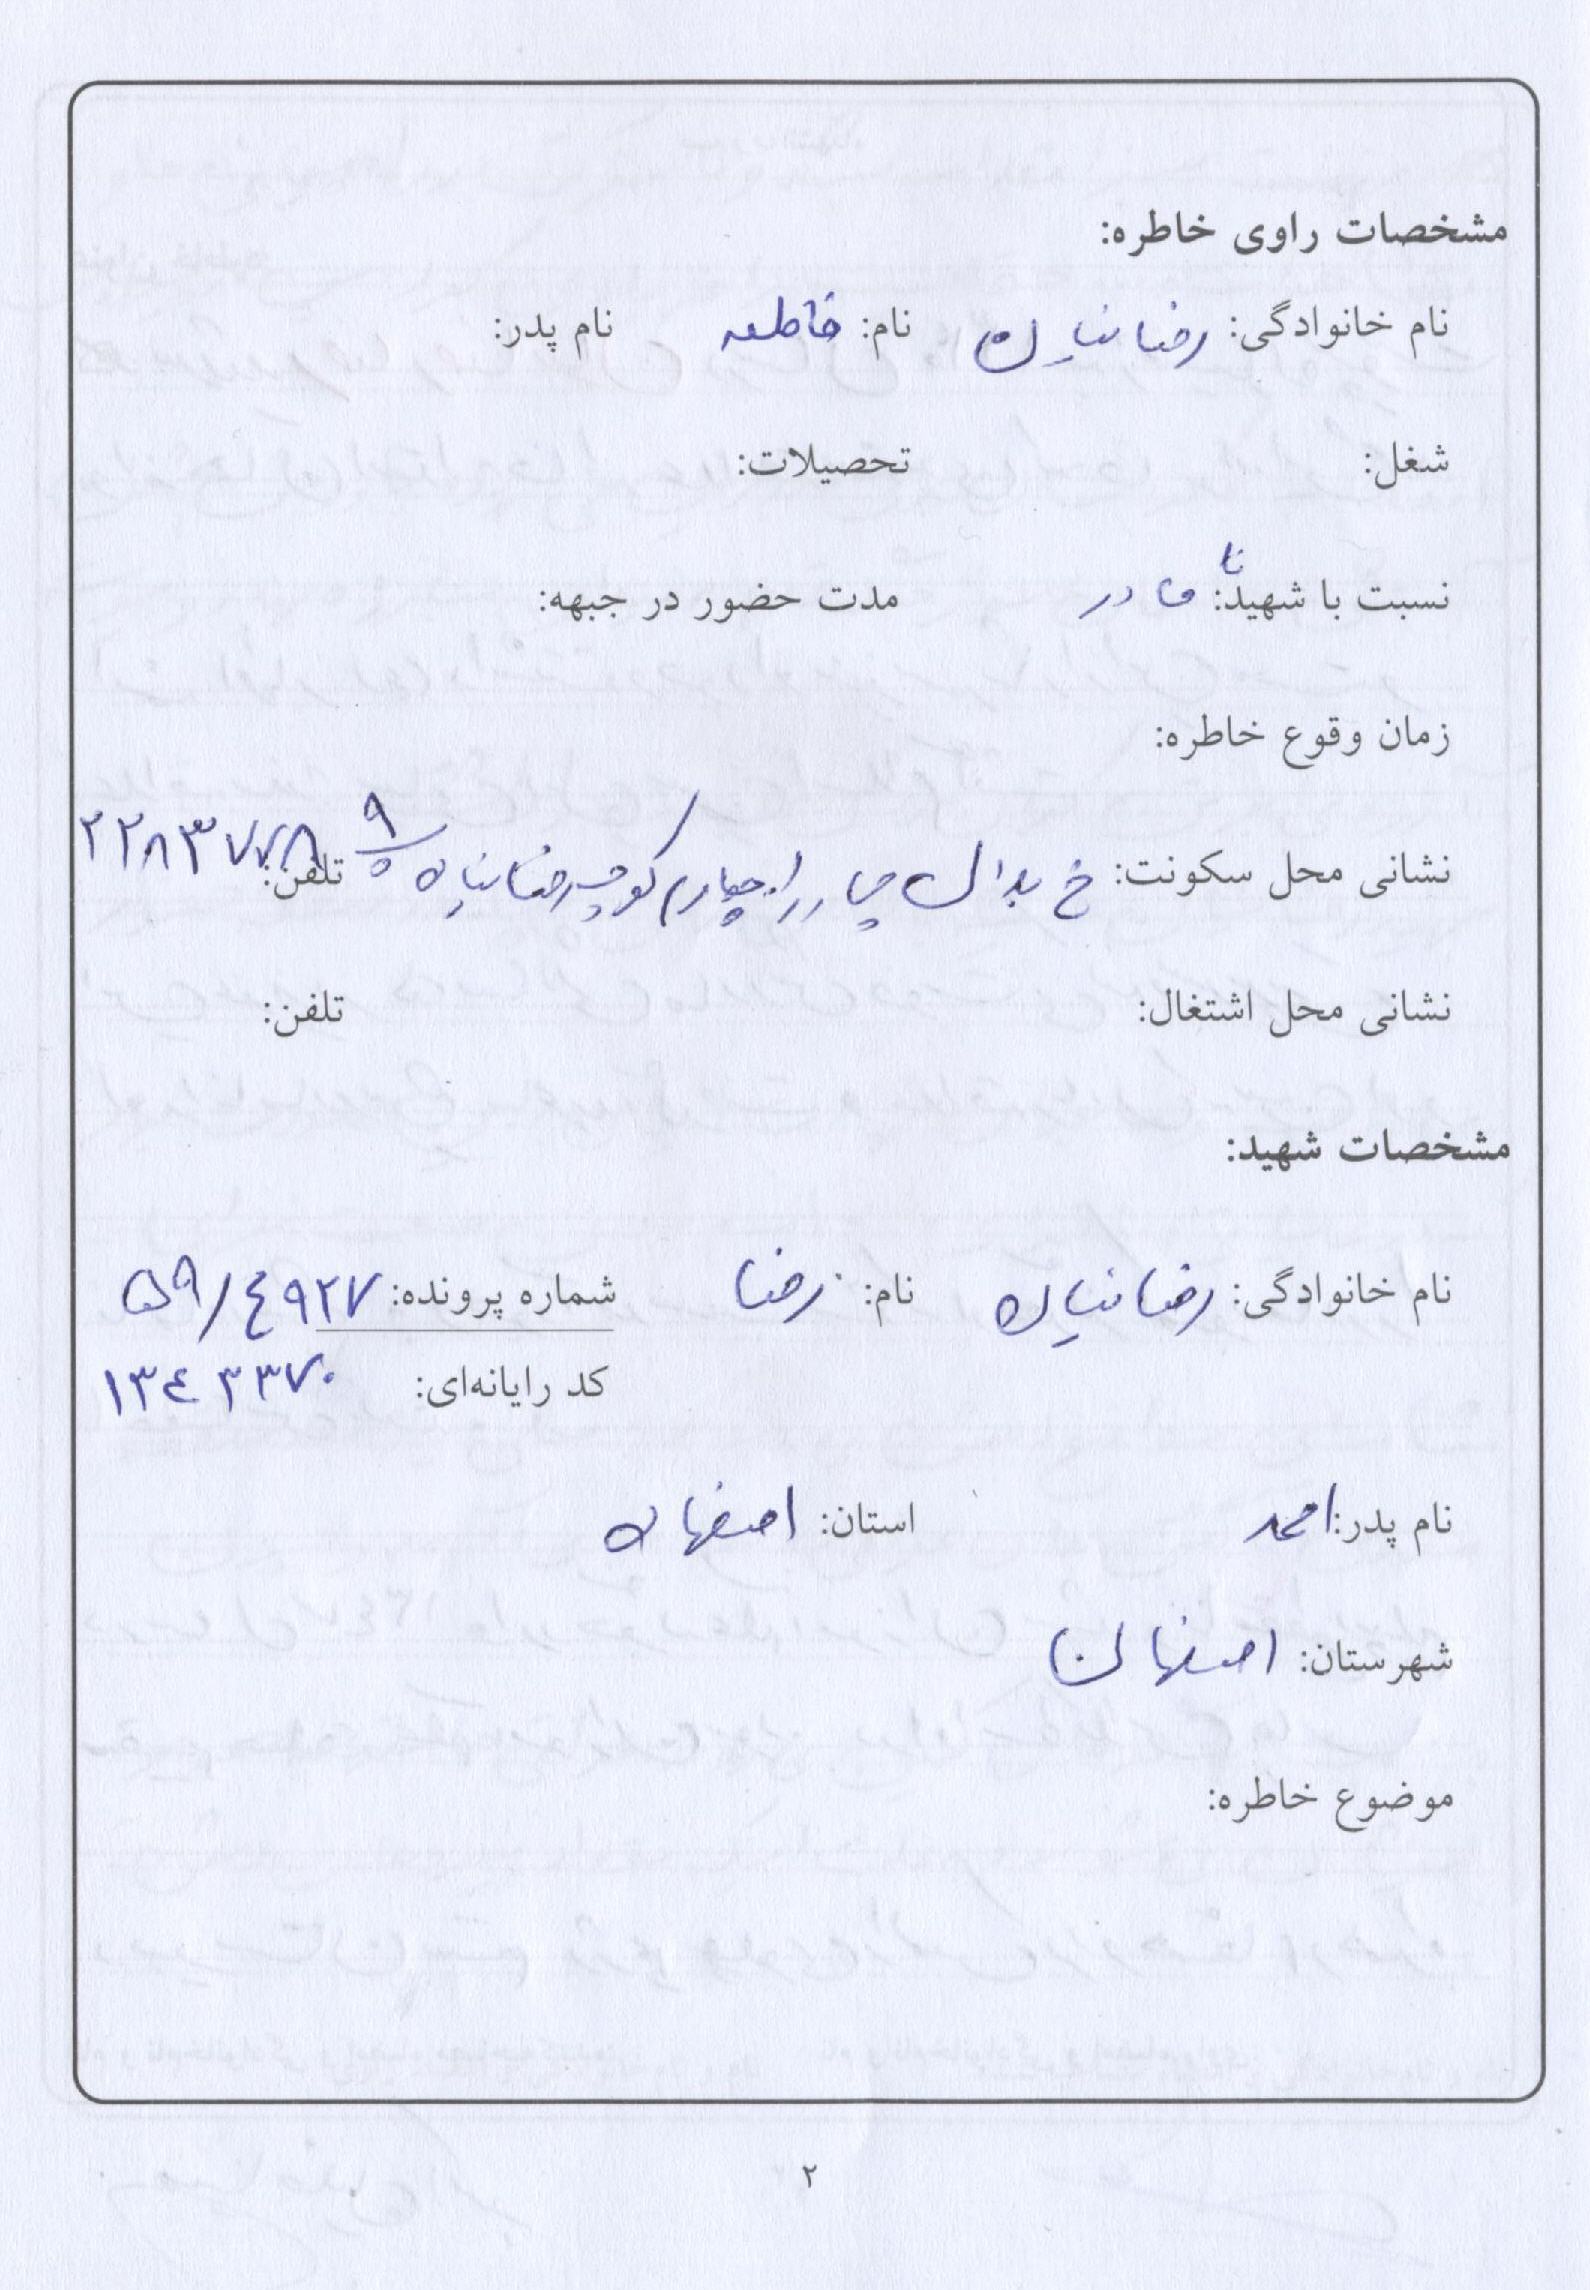 مشخصات راوی خاطره:
نام خانوادگی: رضائیان نام: فاطمه نام پدر:
شغل: تحصیلات:
نسبت با شهید: مادر مدت حضور در جبهه:
زمان وقوع خاطره:
نشانی محل سکونت: خ چهارم کوچه رضائیان تلفن: ۲۲۸۳۷۷۸
نشانی محل اشتغال: تلفن:
مشخصات شهید:
نام خانوادگی: رضائیان نام: رضا شماره پرونده: ۵۹/۴۹۲۷
کد رایانه‌ای: ۱۳۴۳۳۷۰
نام پدر: احمد استان: اصفهان
شهرستان: اصفهان
موضوع خاطره:
۲